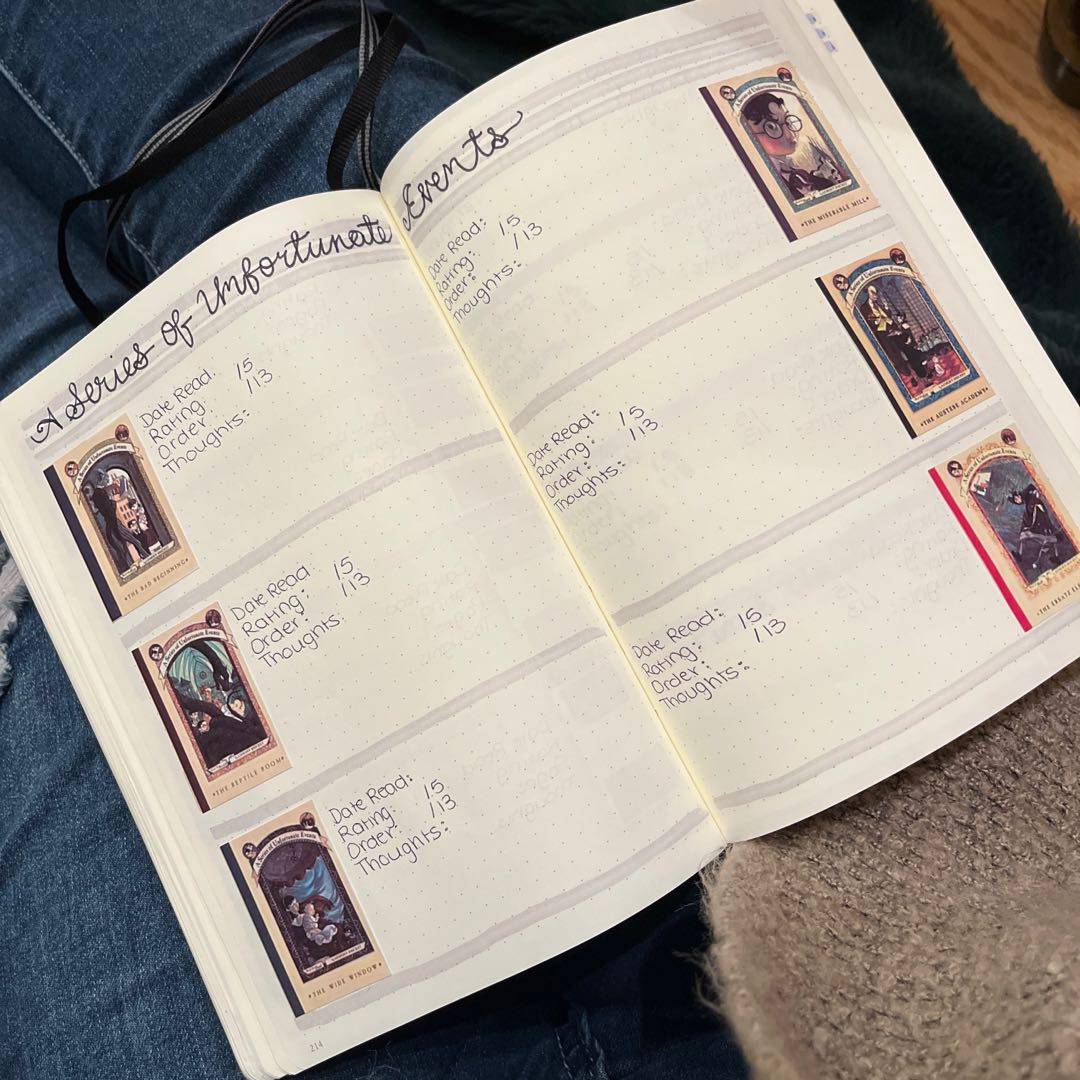 A Series of Unfortunate Events
Date Read:
Rating: /5
Order: /13
Thoughts:
A Series of Unfortunate Events
•THE BAD BEGINNING•
Date Read
Rating: /5
Order: /13
Thoughts:
A Series of Unfortunate Events
•THE REPTILE ROOM•
Date Read:
Rating: /5
Order: /13
Thoughts:
A Series of Unfortunate Events
•THE WIDE WINDOW•
214
Date Read:
Rating: /5
Order: /13
Thoughts:
A Series of Unfortunate Events
•THE MISERABLE MILL•
Date Read:
Rating: /5
Order: /13
Thoughts:
A Series of Unfortunate Events
•THE AUSTERE ACADEMY•
Date Read:
Rating: /5
Order: /13
Thoughts:
A Series of Unfortunate Events
•THE ERSATZ